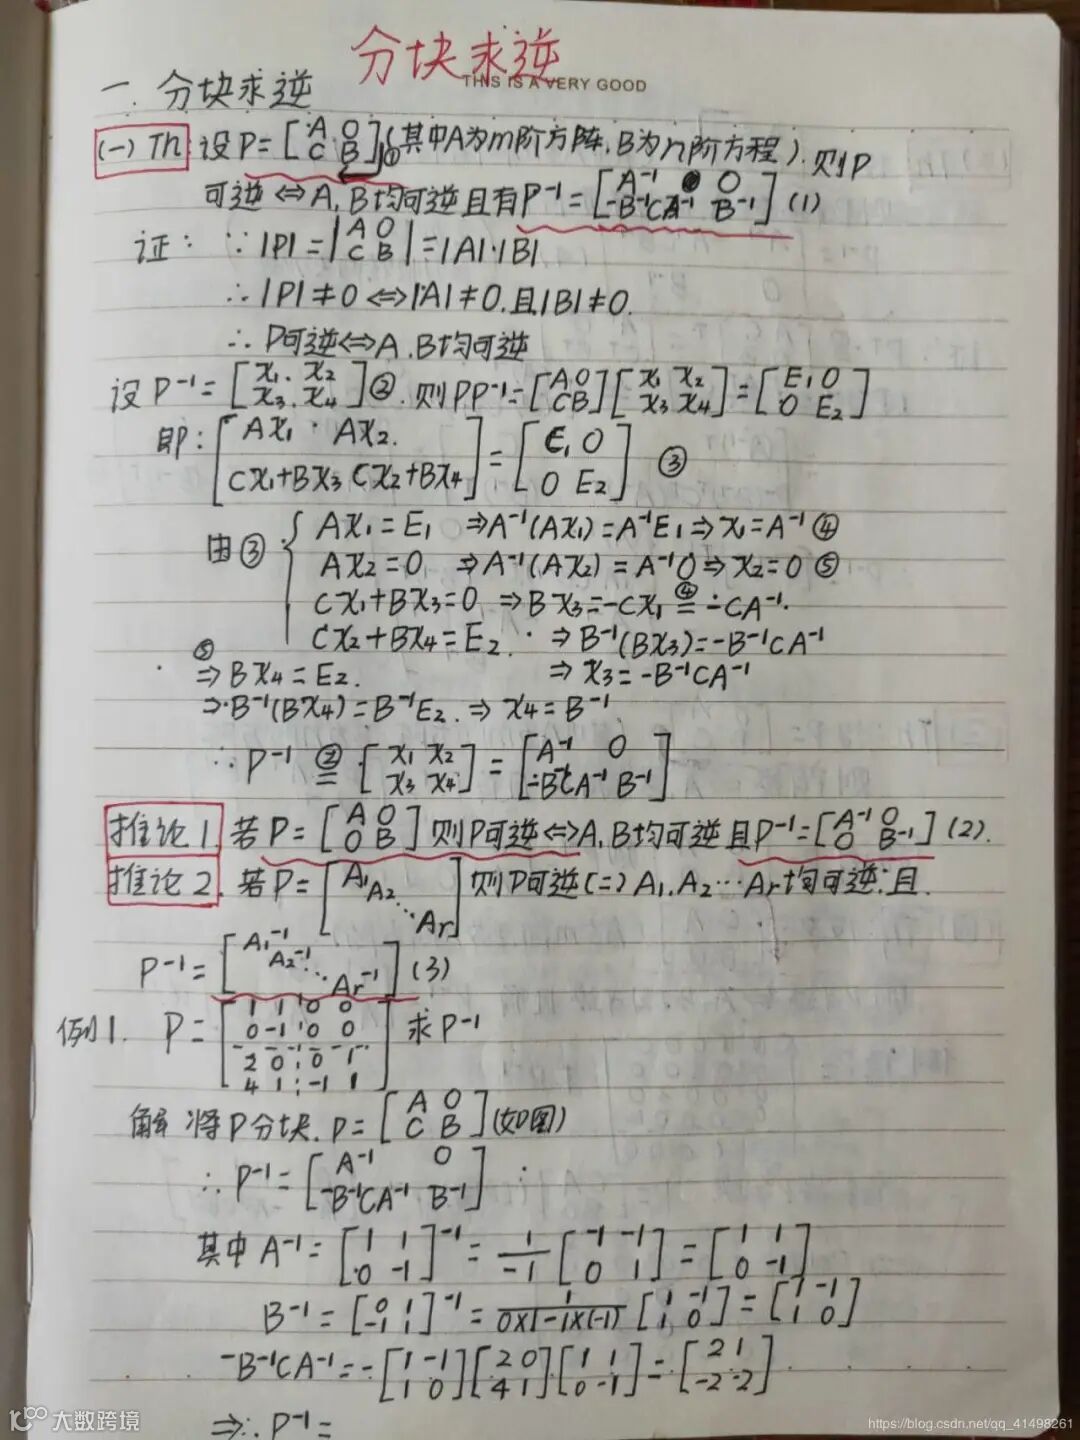 分块求逆
THIS IS A VERY GOOD
一. 分块求逆
(一) Th 设P=[A O; C B]① (其中A为m阶方阵, B为n阶方程). 则P
可逆⇔A, B均可逆且有P⁻¹=[A⁻¹ O; -B⁻¹CA⁻¹ B⁻¹] (1)
证: ∵|P|=|A O; C B|=|A|·|B|
∴|P|≠0⇔|A|≠0.且|B|≠0.
∴P可逆⇔A.B均可逆
设P⁻¹=[x₁. x₂; x₃. x₄]②. 则PP⁻¹=[A O; C B][x₁ x₂; x₃ x₄]=[E₁ O; O E₂]
即: [Ax₁ · Ax₂.; Cx₁+Bx₃ Cx₂+Bx₄]=[E₁ O; O E₂] ③
由③ { Ax₁=E₁ ⇒A⁻¹(Ax₁)=A⁻¹E₁⇒x₁=A⁻¹ ④
Ax₂=0 ⇒A⁻¹(Ax₂)=A⁻¹0⇒x₂=0 ⑤
Cx₁+Bx₃=0 ⇒Bx₃=-Cx₁ ④= -CA⁻¹.
Cx₂+Bx₄=E₂. ⇒B⁻¹(Bx₃)=-B⁻¹CA⁻¹
⑤⇒Bx₄=E₂. ⇒x₃=-B⁻¹CA⁻¹
⇒B⁻¹(Bx₄)=B⁻¹E₂.⇒x₄=B⁻¹
∴P⁻¹ ②= [x₁ x₂; x₃ x₄]=[A⁻¹ O; -B⁻¹CA⁻¹ B⁻¹]
推论1 若P=[A O; O B] 则P可逆⇔A, B均可逆且P⁻¹=[A⁻¹ O; O B⁻¹] (2).
推论2. 若P=[A₁ A₂ ⋱ Ar] 则P可逆(=) A₁.A₂…Ar均可逆.且.
P⁻¹=[A₁⁻¹ A₂⁻¹ ⋱ Ar⁻¹] (3)
例1. P=[1 1 0 0; 0 -1 0 0; 2 0 0 1; 4 1 -1 1] 求P⁻¹
解 将P分块. P=[A O; C B](如图)
∴P⁻¹=[A⁻¹ O; -B⁻¹CA⁻¹ B⁻¹]
其中A⁻¹=[1 1; 0 -1]⁻¹=1/-1[-1 -1; 0 1]=[1 1; 0 -1]
B⁻¹=[0 1; -1 1]⁻¹=1/0×1-1×(-1)[1 -1; 1 0]=[1 -1; 1 0]
-B⁻¹CA⁻¹=-[1 -1; 1 0][2 0; 4 1][1 1; 0 -1]=[2 1; -2 -2]
⇒∴P⁻¹=
大数跨境
https://blog.csdn.net/qq_41498261